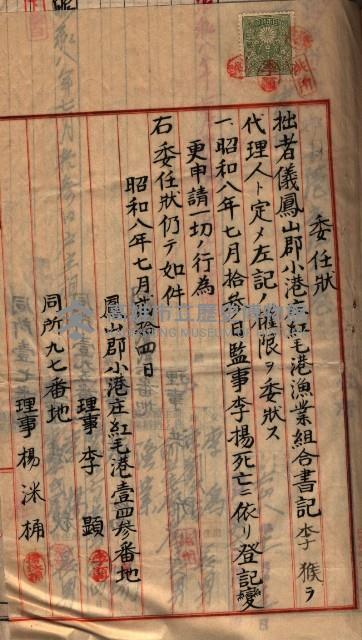 委任狀
拙者儀鳳山郡小港庄紅毛港漁業組合書記李猴ヲ
代理人ト定メ左記ノ權限ヲ委狀ス
一、昭和八年七月拾參日監事李楊死亡ニ依リ登記變
更申請一切ノ行為
右委任狀仍テ如件
昭和八年七月拾四日
鳳山郡小港庄紅毛港壹四參番地
理事 李 顯
同所九七番地
理事 楊